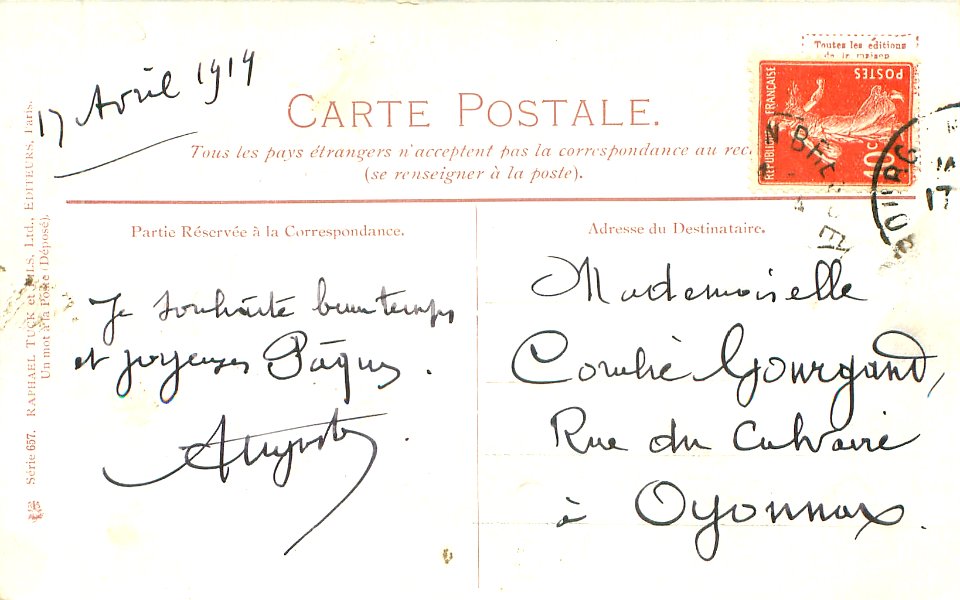 17 Avril 1914
Toutes les éditions
de la maison
CARTE POSTALE.
Tous les pays étrangers n'acceptent pas la correspondance au rec
(se renseigner à la poste).
RÉPUBLIQUE FRANÇAISE
POSTES
10c
BOURG
17
Partie Réservée à la Correspondance.
Je souhaite beau temps
et joyeuses Pâques.
Auguste
Adresse du Destinataire.
Mademoiselle
Gourgand,
Rue du Calvaire
à Oyonnax.
Série 657. RAPHAEL TUCK et FILS, Ltd., EDITEURS, Paris.
Un mot à la Poste (Déposé).